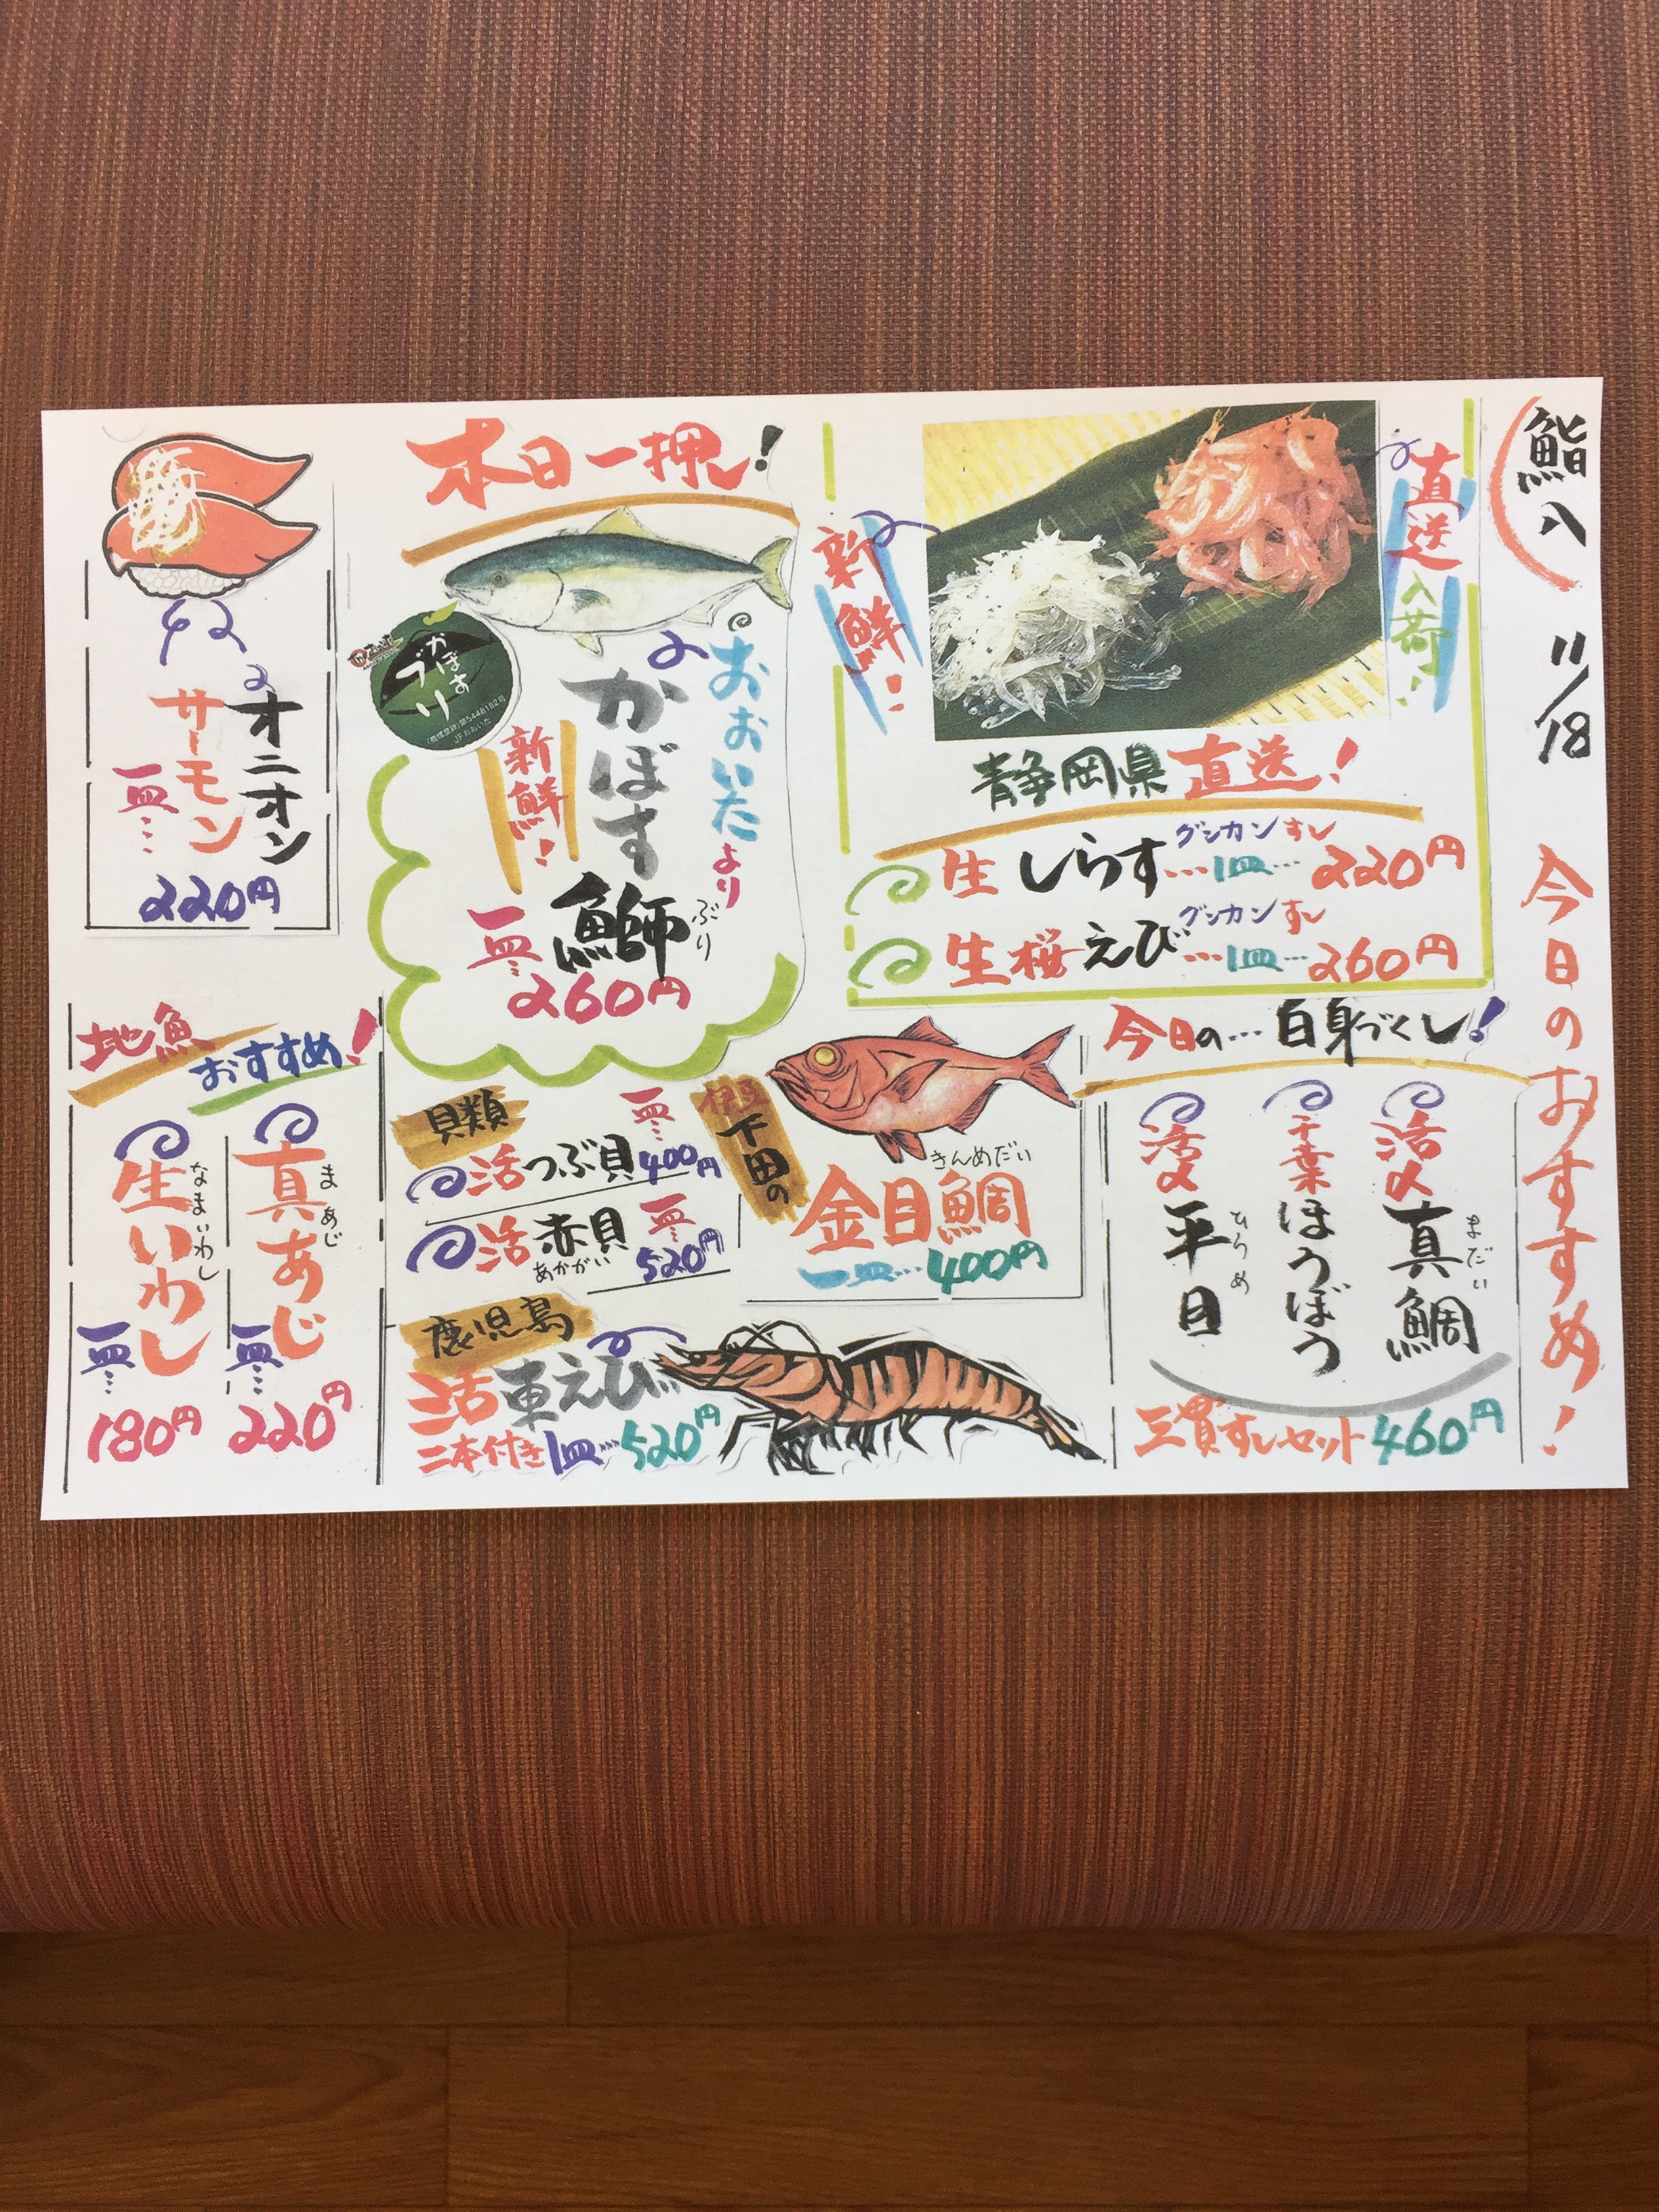 鮨八
11/18
今日のおすすめ!
直送
入荷!
新鮮!
静岡県直送!
生しらすグンカンすし…1皿…220円
生桜えびグンカンすし…1皿…260円
今日の…白身づくし!
活〆真鯛
まだい
千葉ほうぼう
活〆平目
ひらめ
三貫すしセット460円
本日一押し!
おおいたより
かぼす鰤
ぶり
新鮮!
一皿…
260円
かぼす
ブリ
JFおおいた
伊豆
下田の
きんめだい
金目鯛
一皿…400円
貝類
活つぶ貝
一皿…
400円
活赤貝
あかがい
一皿…
520円
鹿児島
活車えび
二本付き1皿…520円
オニオン
サーモン
一皿…
220円
地魚
おすすめ!
真あじ
まあじ
一皿…
220円
生いわし
なまいわし
一皿…
180円